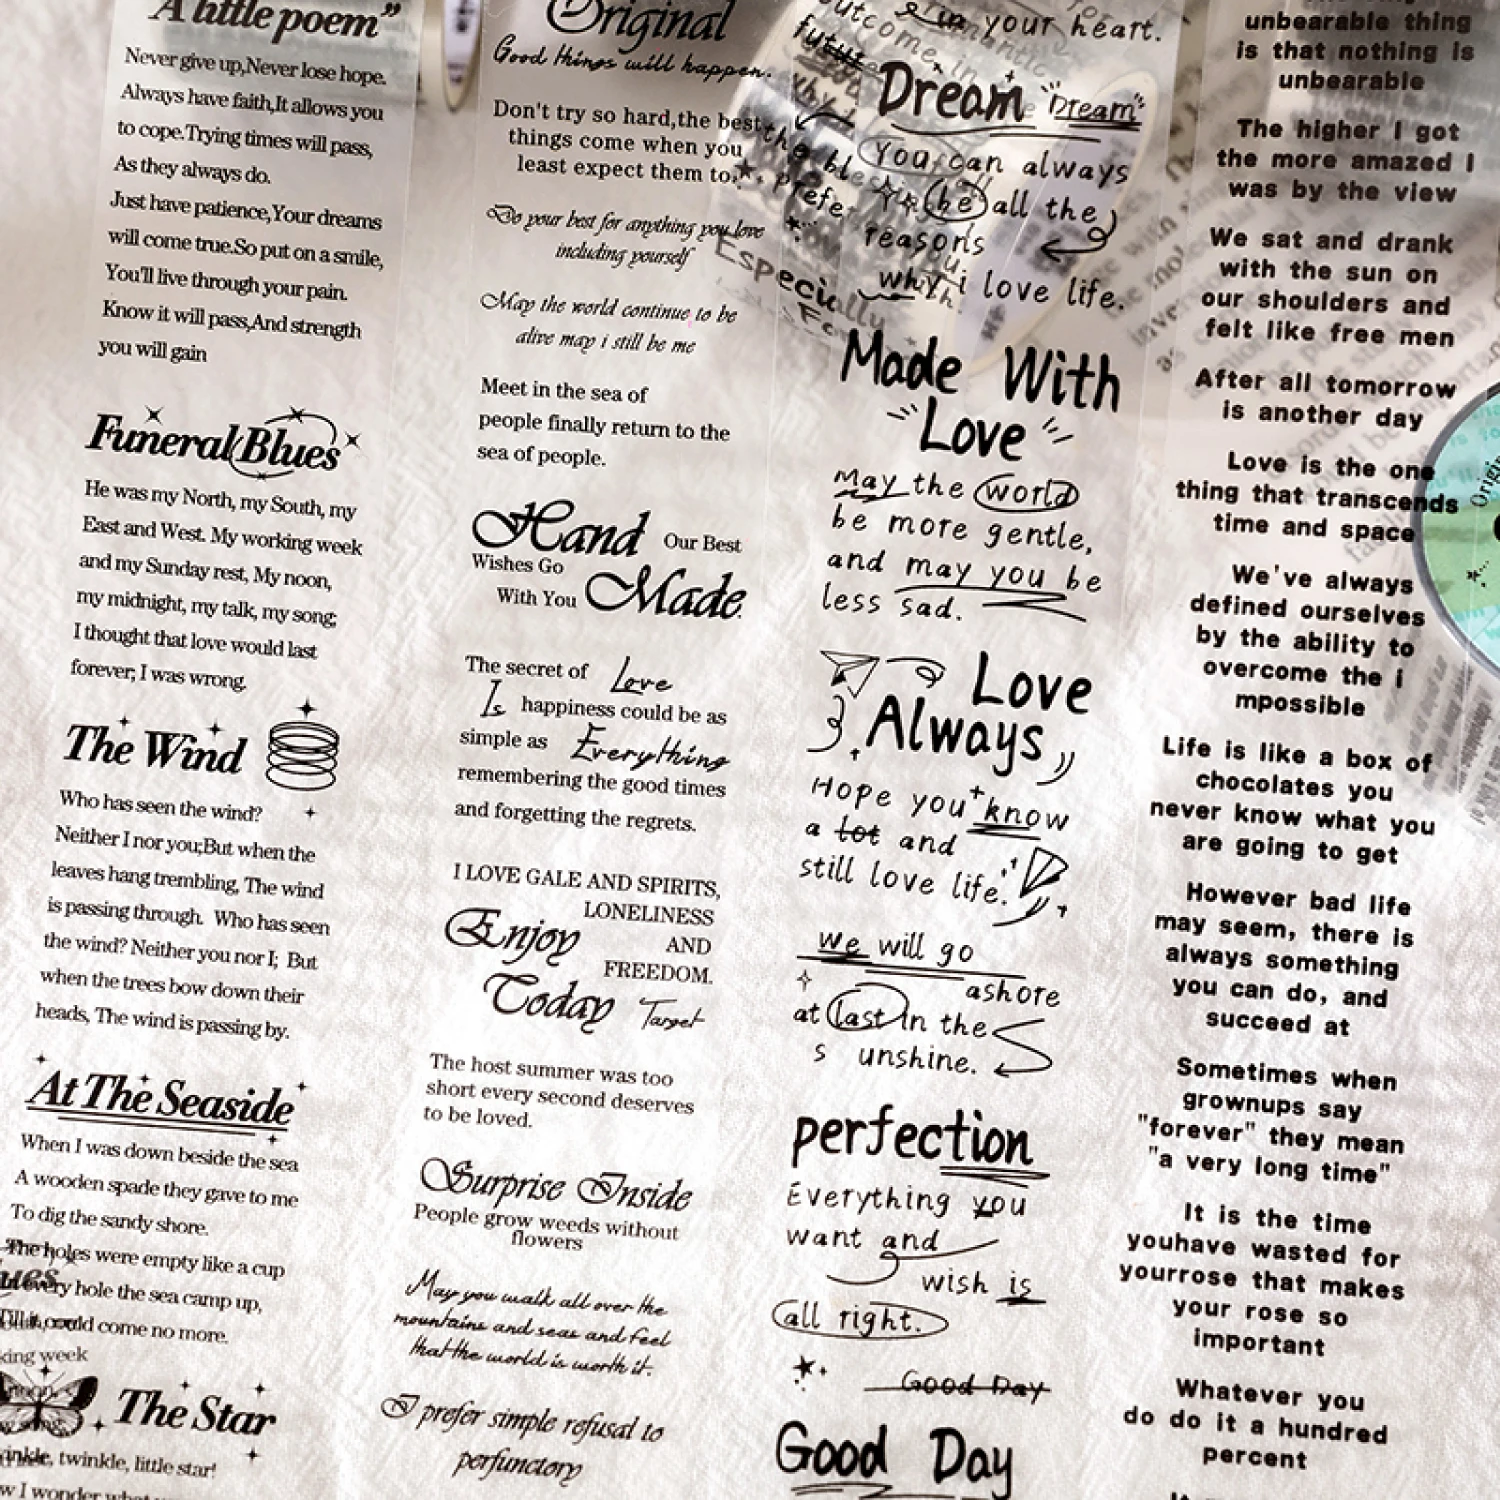 A little poem”
Never give up,Never lose hope.
Always have faith,It allows you
to cope.Trying times will pass,
As they always do.
Just have patience,Your dreams
will come true.So put on a smile,
You'll live through your pain.
Know it will pass,And strength
you will gain
Funeral Blues
He was my North, my South, my
East and West. My working week
and my Sunday rest, My noon,
my midnight, my talk, my song;
I thought that love would last
forever; I was wrong.
The Wind
Who has seen the wind?
Neither I nor you;But when the
leaves hang trembling, The wind
is passing through. Who has seen
the wind? Neither you nor I; But
when the trees bow down their
heads, The wind is passing by.
At The Seaside
When I was down beside the sea
A wooden spade they gave to me
To dig the sandy shore.
The holes were empty like a cup
In every hole the sea camp up,
Till it could come no more.
king week
The Star
twinkle, little star!
I wonder what
Original
Good things will happen.
Don't try so hard,the best
things come when you
least expect them to.
Do your best for anything you love
including yourself
May the world continue to be
alive may i still be me
Meet in the sea of
people finally return to the
sea of people.
Hand Our Best
Wishes Go
With You Made.
The secret of Love
Is happiness could be as
simple as Everything
remembering the good times
and forgetting the regrets.
I LOVE GALE AND SPIRITS,
LONELINESS
Enjoy AND
FREEDOM.
Today Target
The host summer was too
short every second deserves
to be loved.
Surprise Inside
People grow weeds without
flowers
May you walk all over the
mountains and seas and feel
that the world is worth it.
I prefer simple refusal to
perfunctory
in your heart.
Dream "Dream"
You can always
be all the
reasons
why i love life.
Especially
Made With
Love
May the world
be more gentle,
and may you be
less sad.
Love
Always
Hope you know
a lot and
still love life.
We will go
ashore
at last in the
s unshine.
perfection
Everything you
want and
wish is
all right.
Good Day
Good Day
unbearable thing
is that nothing is
unbearable
The higher I got
the more amazed I
was by the view
We sat and drank
with the sun on
our shoulders and
felt like free men
After all tomorrow
is another day
Love is the one
thing that transcends
time and space
We've always
defined ourselves
by the ability to
overcome the i
mpossible
Life is like a box of
chocolates you
never know what you
are going to get
However bad life
may seem, there is
always something
you can do, and
succeed at
Sometimes when
grownups say
"forever" they mean
"a very long time"
It is the time
youhave wasted for
yourrose that makes
your rose so
important
Whatever you
do do it a hundred
percent